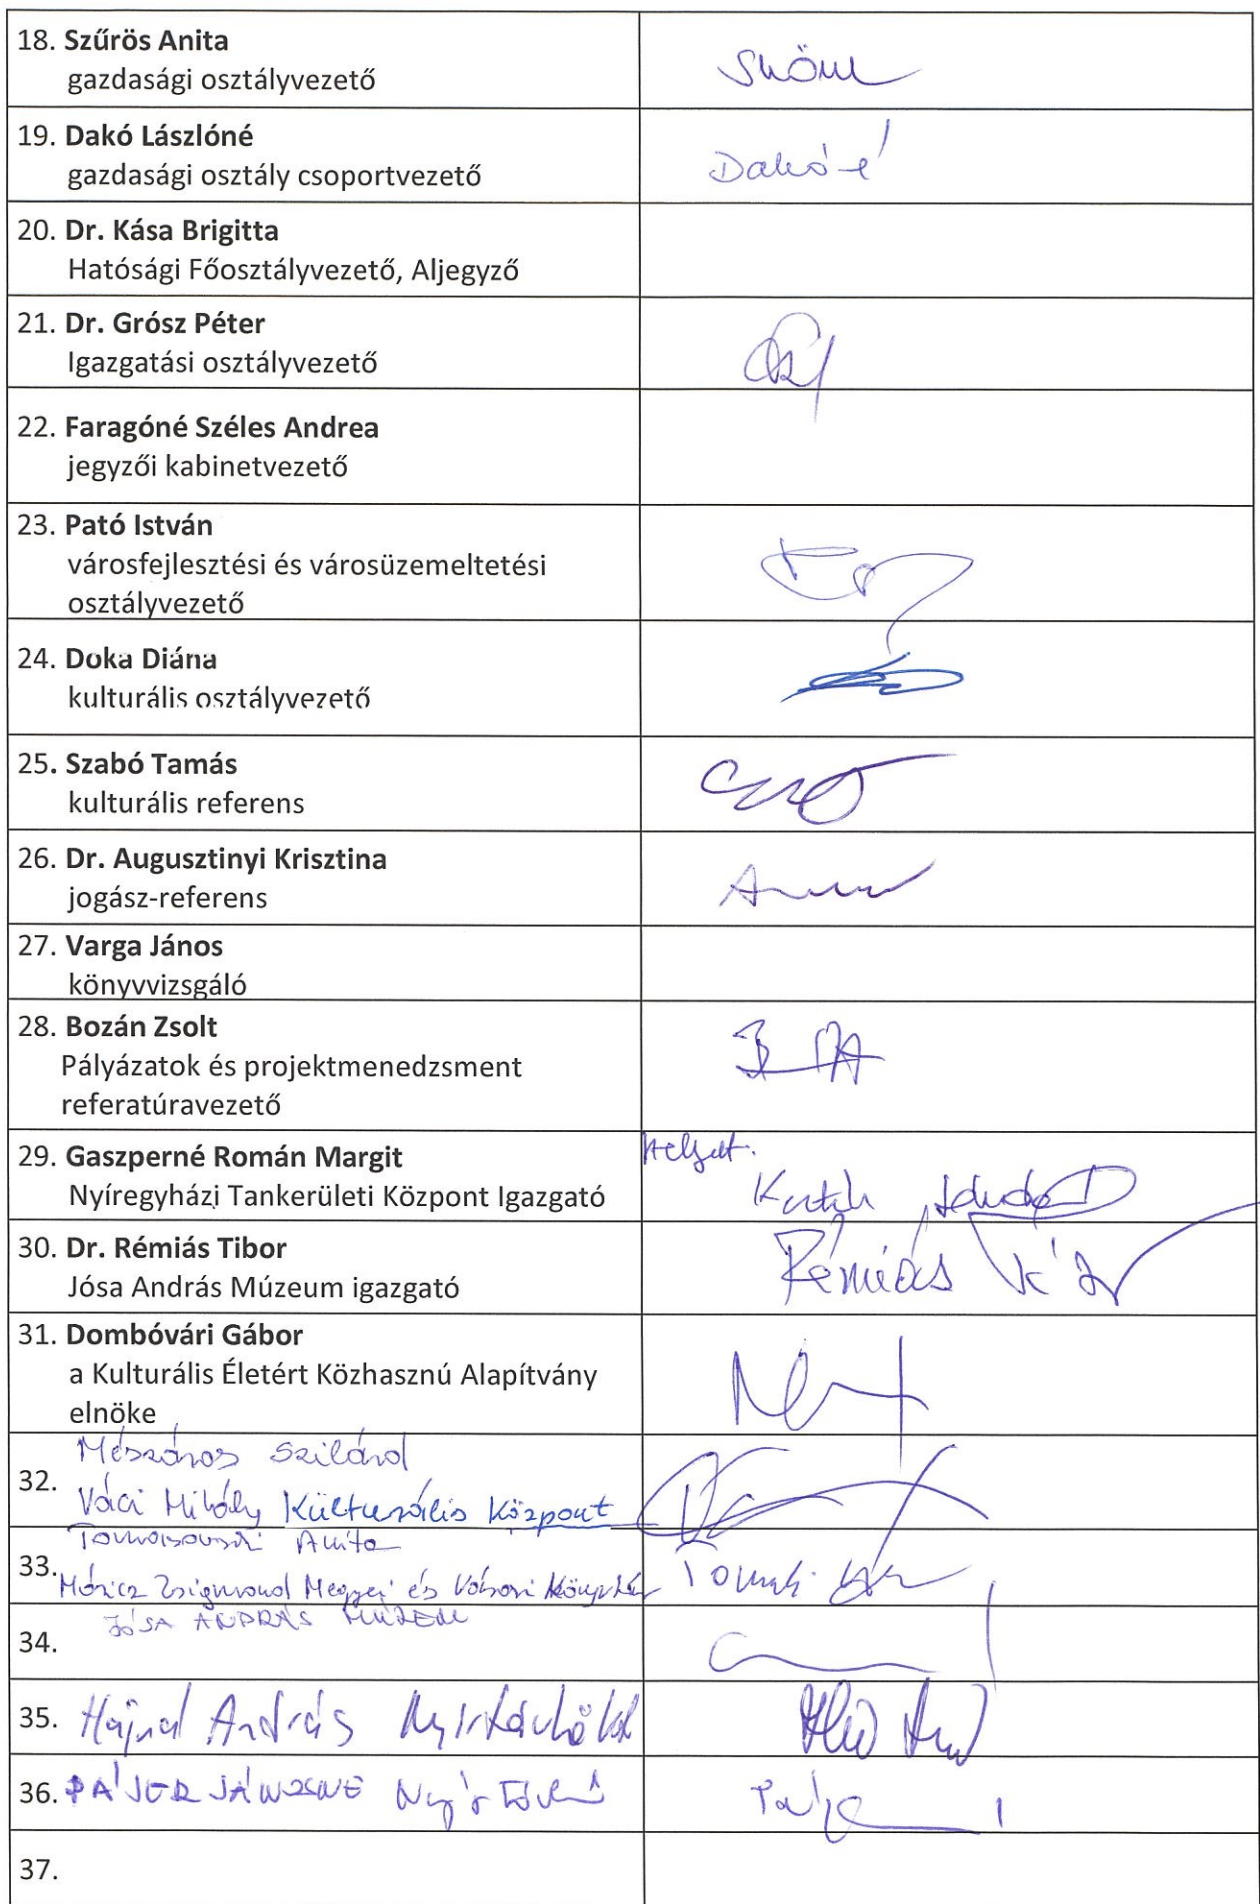 18. Szűrös Anita
gazdasági osztályvezető
19. Dakó Lászlóné
gazdasági osztály csoportvezető
Dakó-é
20. Dr. Kása Brigitta
Hatósági Főosztályvezető, Aljegyző
21. Dr. Grósz Péter
Igazgatási osztályvezető
22. Faragóné Széles Andrea
jegyzői kabinetvezető
23. Pató István
városfejlesztési és városüzemeltetési
osztályvezető
24. Doka Diána
kulturális osztályvezető
25. Szabó Tamás
kulturális referens
26. Dr. Augusztinyi Krisztina
jogász-referens
27. Varga János
könyvvizsgáló
28. Bozán Zsolt
Pályázatok és projektmenedzsment
referatúravezető
29. Gaszperné Román Margit
Nyíregyházi Tankerületi Központ Igazgató
30. Dr. Rémiás Tibor
Jósa András Múzeum igazgató
Rémiás
31. Dombóvári Gábor
a Kulturális Életért Közhasznú Alapítvány
elnöke
Mészáros Szilárd
32.
Váci Mihály Kulturális Központ
Anita
33.
Móricz Zsigmond Megyei és Városi Könyvtár
JÓSA ANDRÁS MÚZEUM
34.
35. Hajnal András
36. PÁJER JÁNOSNÉ
37.